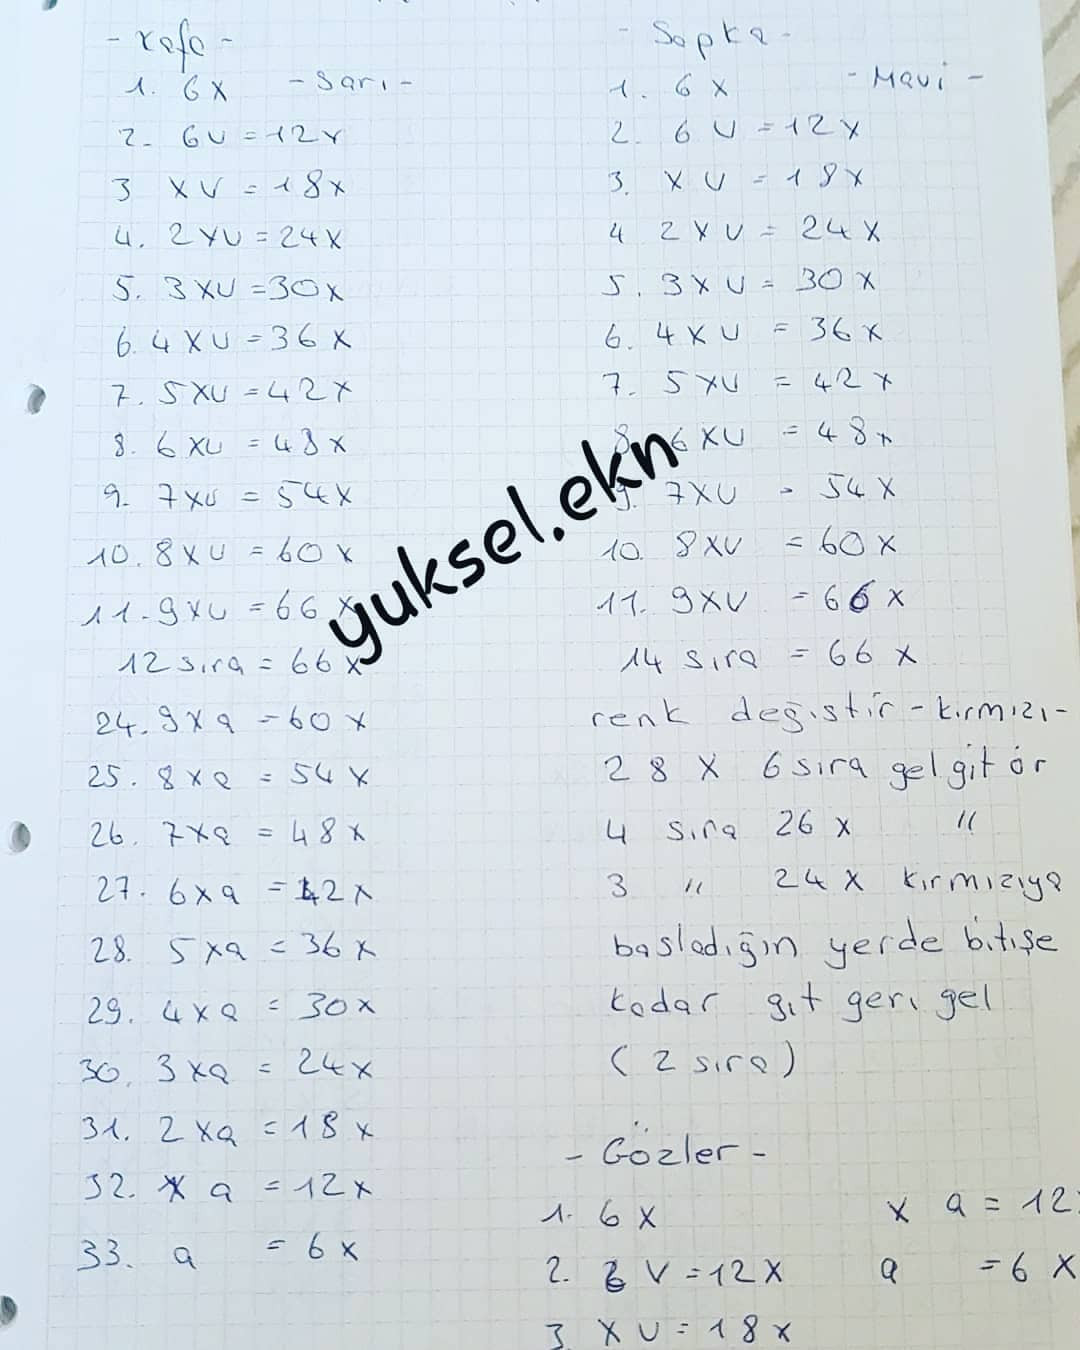 - Kafa -
1. 6X - Sarı -
2. 6V = 12X
3 XV = 18X
4. 2XV = 24X
5. 3XU = 30X
6. 4XU = 36X
7. 5XU = 42X
8. 6XU = 48X
9. 7XU = 54X
10. 8XU = 60X
11. 9XU = 66X
12 sıra = 66X
24. 9Xa = 60X
25. 8Xa = 54X
26. 7Xa = 48X
27. 6Xa = 42X
28. 5Xa = 36X
29. 4Xa = 30X
30. 3Xa = 24X
31. 2Xa = 18X
32. X a = 12X
33. a = 6X
- Sapka -
1. 6 X - Mavi -
2. 6 U = 12X
3. X U = 18X
4 2XU = 24X
5. 3XU = 30X
6. 4XU = 36X
7. 5XU = 42X
8. 6XU = 48X
9. 7XU = 54X
10. 8XU = 60X
11. 9XV = 66X
14 sıra = 66X
renk değıstir - kırmızı -
28 X 6 sıra gel git ör
4 sıra 26 X "
3 " 24 X kırmızıya
basladığın yerde bitişe
kadar git geri gel
(2 sıra)
- Gözler -
1. 6X X a = 12
2. 6 V = 12X a = 6 X
3 XU = 18X
yuksel.ekn